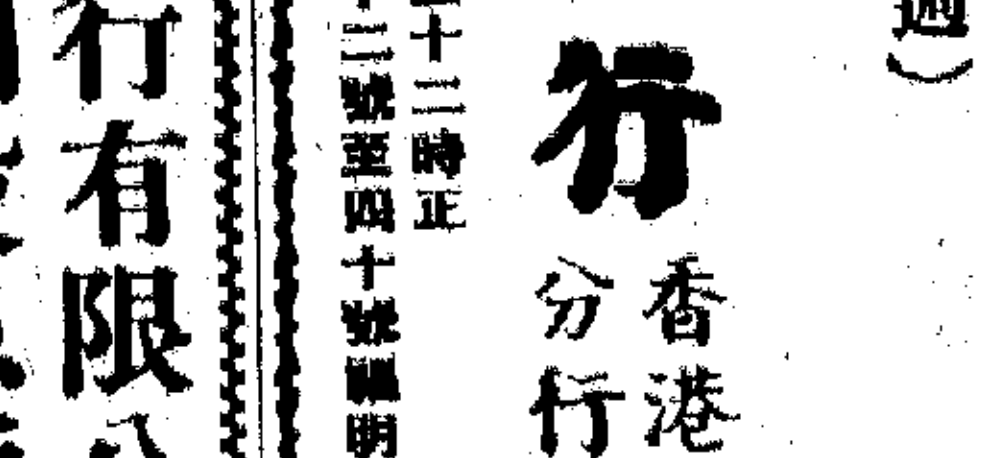 週）
行
香港
分行
十二時正
二號至四十號讓明
行有限公